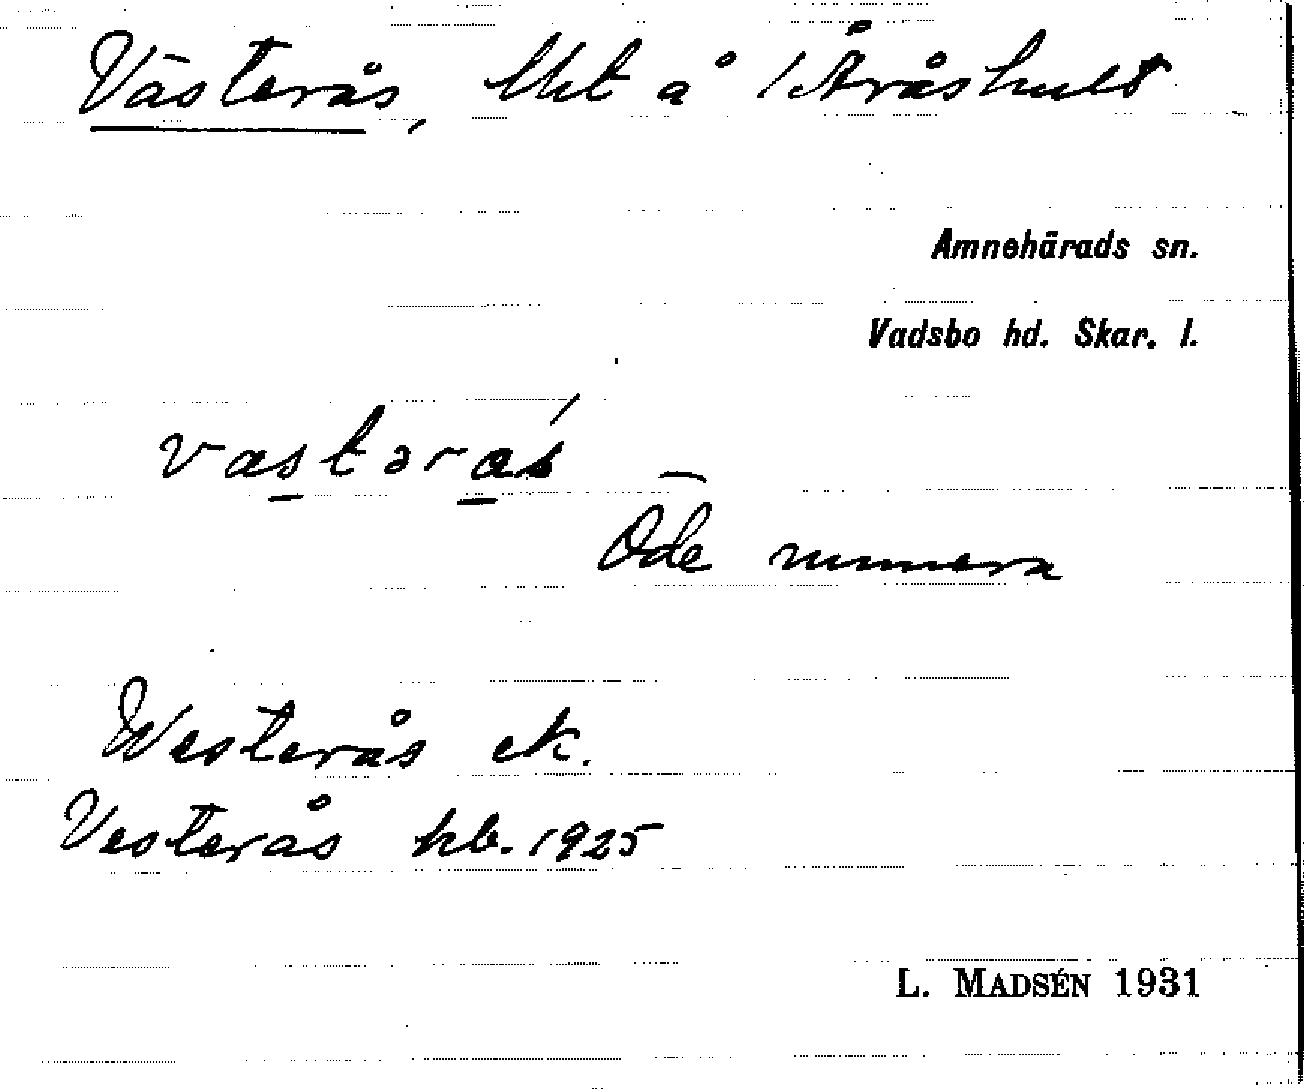 Västerås, lht å 1 Åråshult
Amnehärads sn.
Vadsbo hd. Skar. l.
vastəras
Öde numera
Westerås ek.
Vesterås hb. 1925
L. MADSÉN 1931